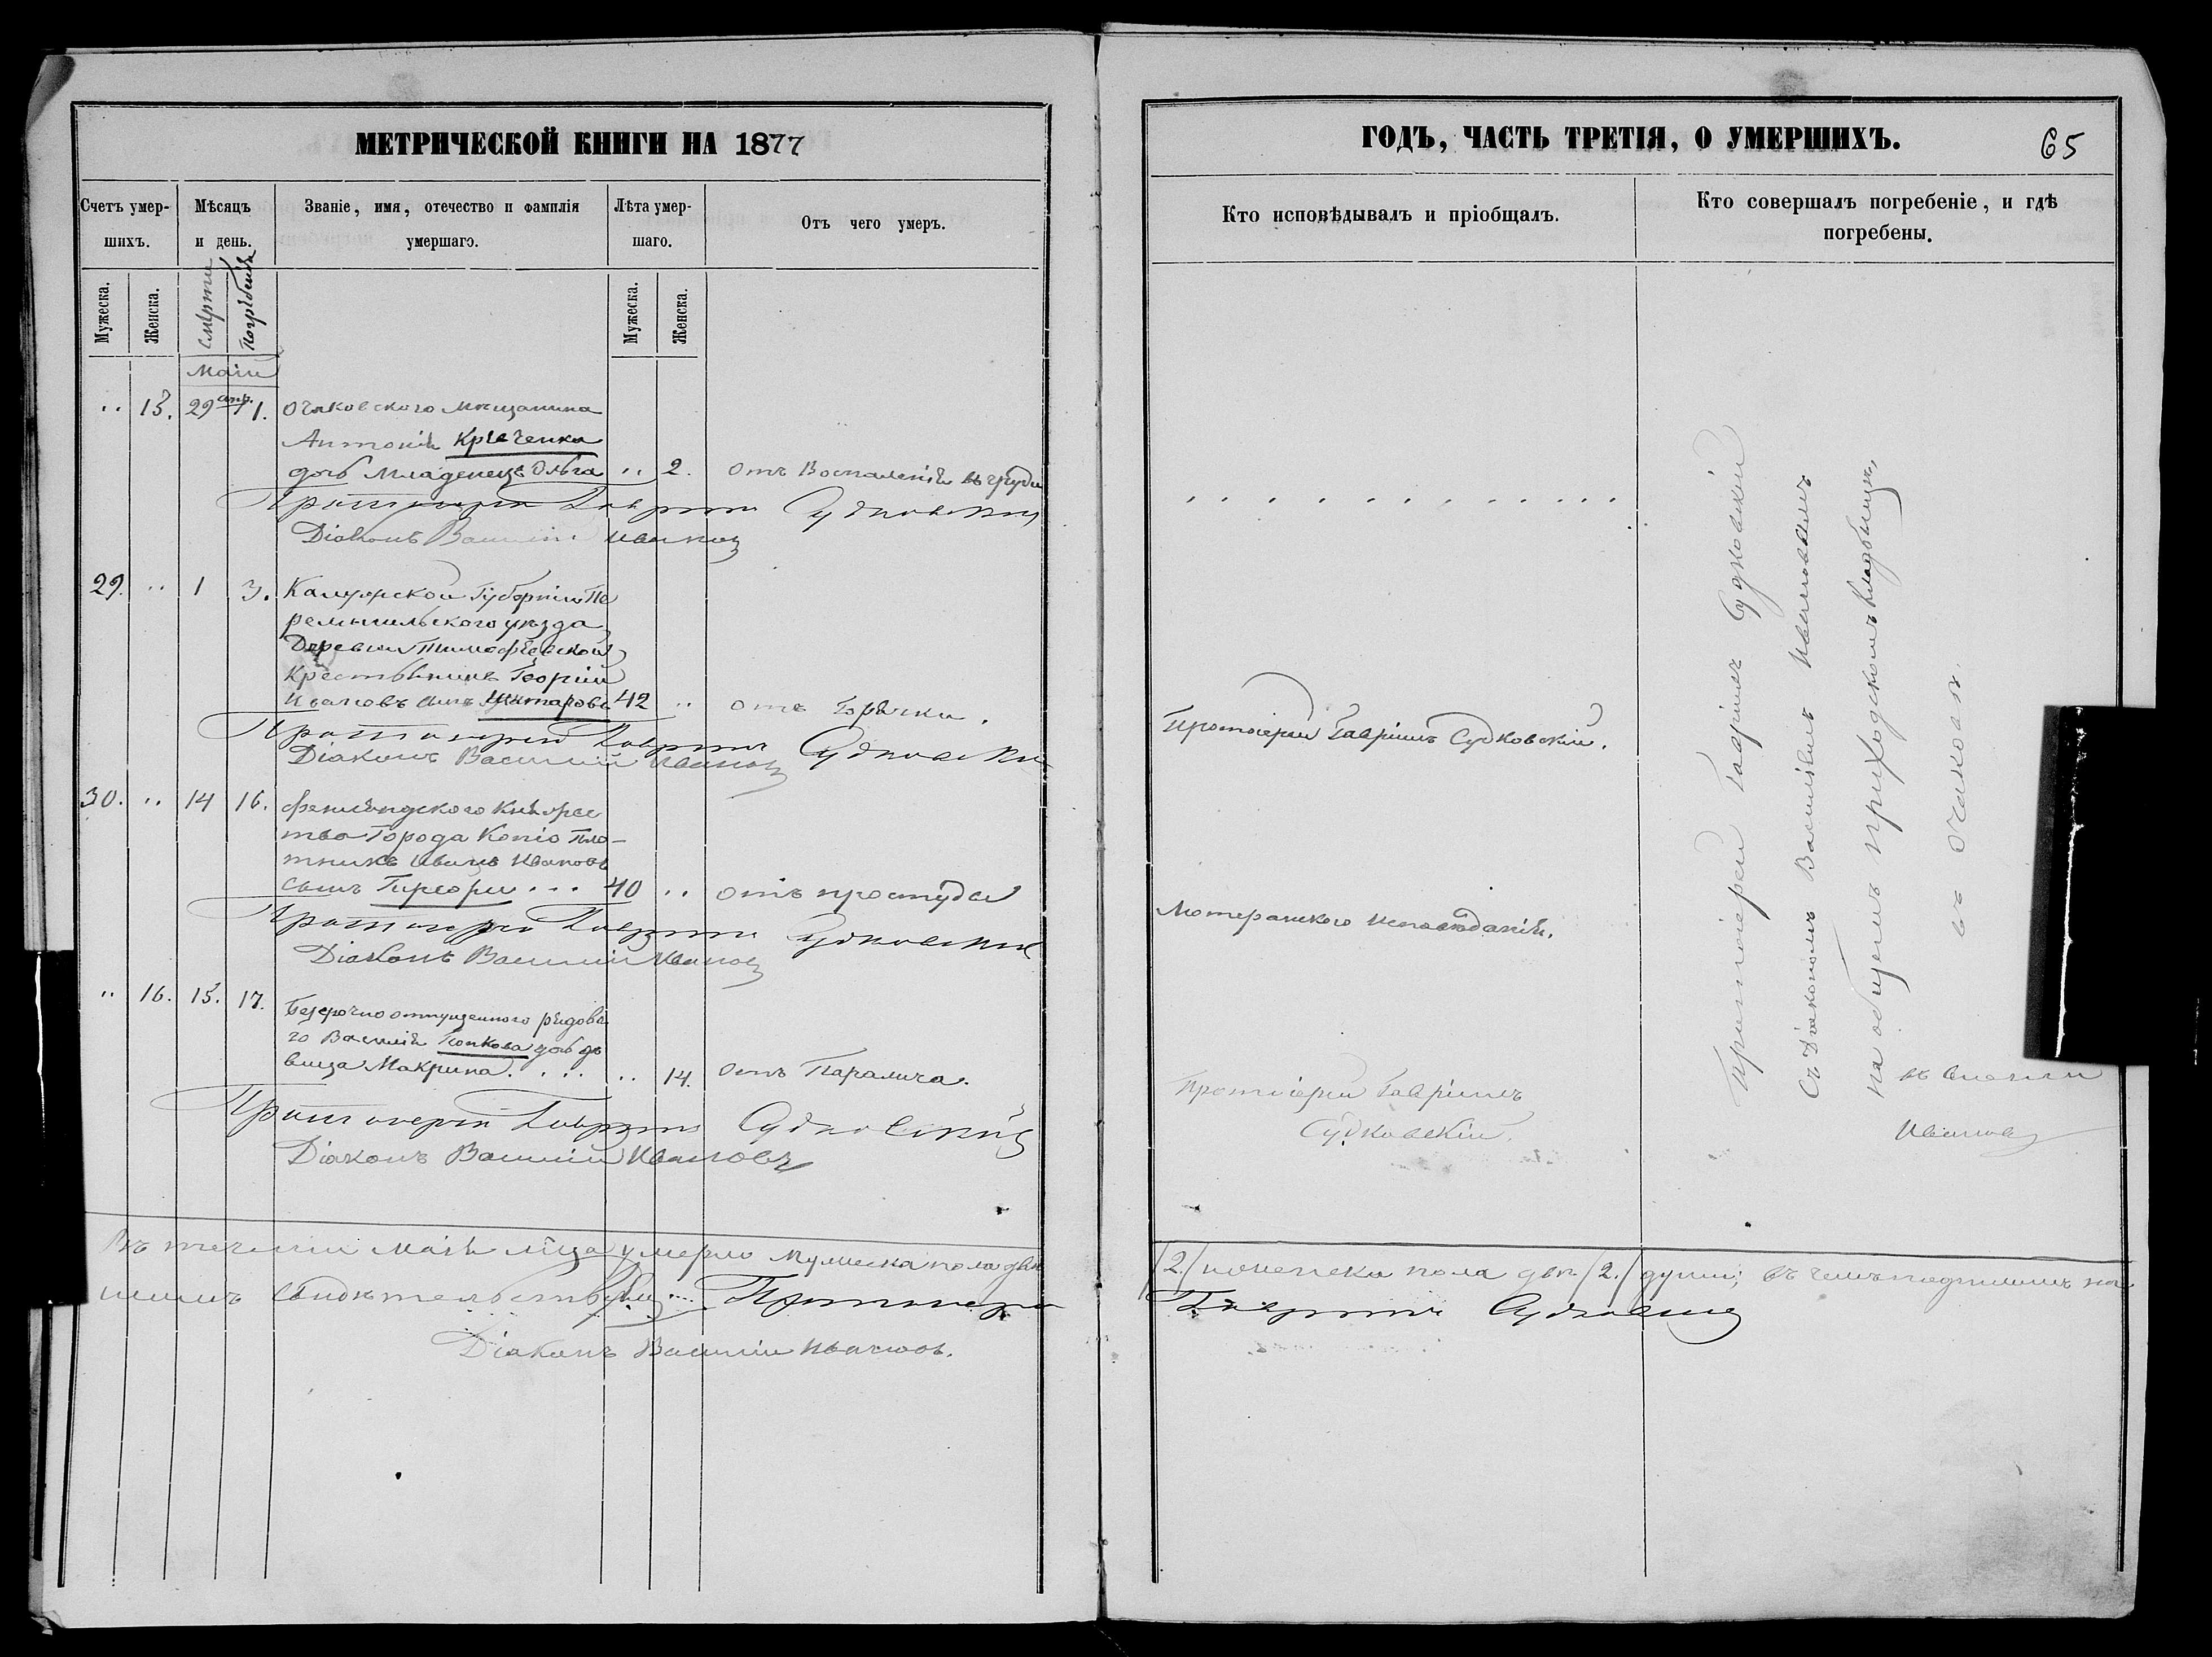 МЕТРИЧЕСКОЙ КНИГИ НА 1877
Счетъ умершихъ.
Мѣсяцъ и день.
Званіе, имя, отечество и фамилія умершаго.
Лѣта умершаго.
Отъ чего умеръ.
Мужеска.
Женска.
Смерти
Погребенія
Мужеска.
Женска.
Маій
.. 15. 29 апр. 1. Очаковскаго мещанина
Антонія
дочь младенецъ Ольга .. 2. отъ Воспаленія въ груди
Протоіерей Гавріилъ Судковскій
Діаконъ Василій Ивановъ
29. .. 1 3. Калужской Губерніи Пе
ремышльского уезда
Деревни Тимофеевской
Крестьянинъ Георгій
Ивановъ сынъ 42 .. отъ Горячки.
Протоіерей Гавріилъ Судковскій
Діаконъ Василій Ивановъ
30. .. 14 16. Финляндского Княжес
тва Города Копіо Пло-
тникъ Иванъ Ивановъ
сынъ ... 40 .. отъ простуды
Протоіерей Гавріилъ Судковскій
Діаконъ Василій Ивановъ
.. 16. 15. 17. Безсрочно отпущенного рядова
го Василія Попкова дочь де
вица Макрина. . . . .. 14. отъ Паралича.
Протоіерей Гавріилъ Судковскій
Діаконъ Василій Ивановъ
Въ теченіи Маія м-ца умерло мужеска пола две
шимъ свидетельствуемъ: ... Протоіерей
Діаконъ Василій Ивановъ.
ГОДЪ, ЧАСТЬ ТРЕТІЯ, О УМЕРШИХЪ.
65
Кто исповѣдывалъ и пріобщалъ.
Кто совершалъ погребеніе, и гдѣ погребены.
Протоіерей Гавріилъ Судковскій.
Лютеранского исповѣданія.
Протоіерей Гавріилъ
Судковскій.
Протоіерей Гавріилъ Судковскій
съ Діакономъ Василіемъ Ивановымъ
на общемъ приходскомъ кладбищѣ,
въ Очаковѣ.
Ивановъ
/2./ и женска пола две /2./ души; въ чемъ подписомъ на-
Гавріилъ Судковскій